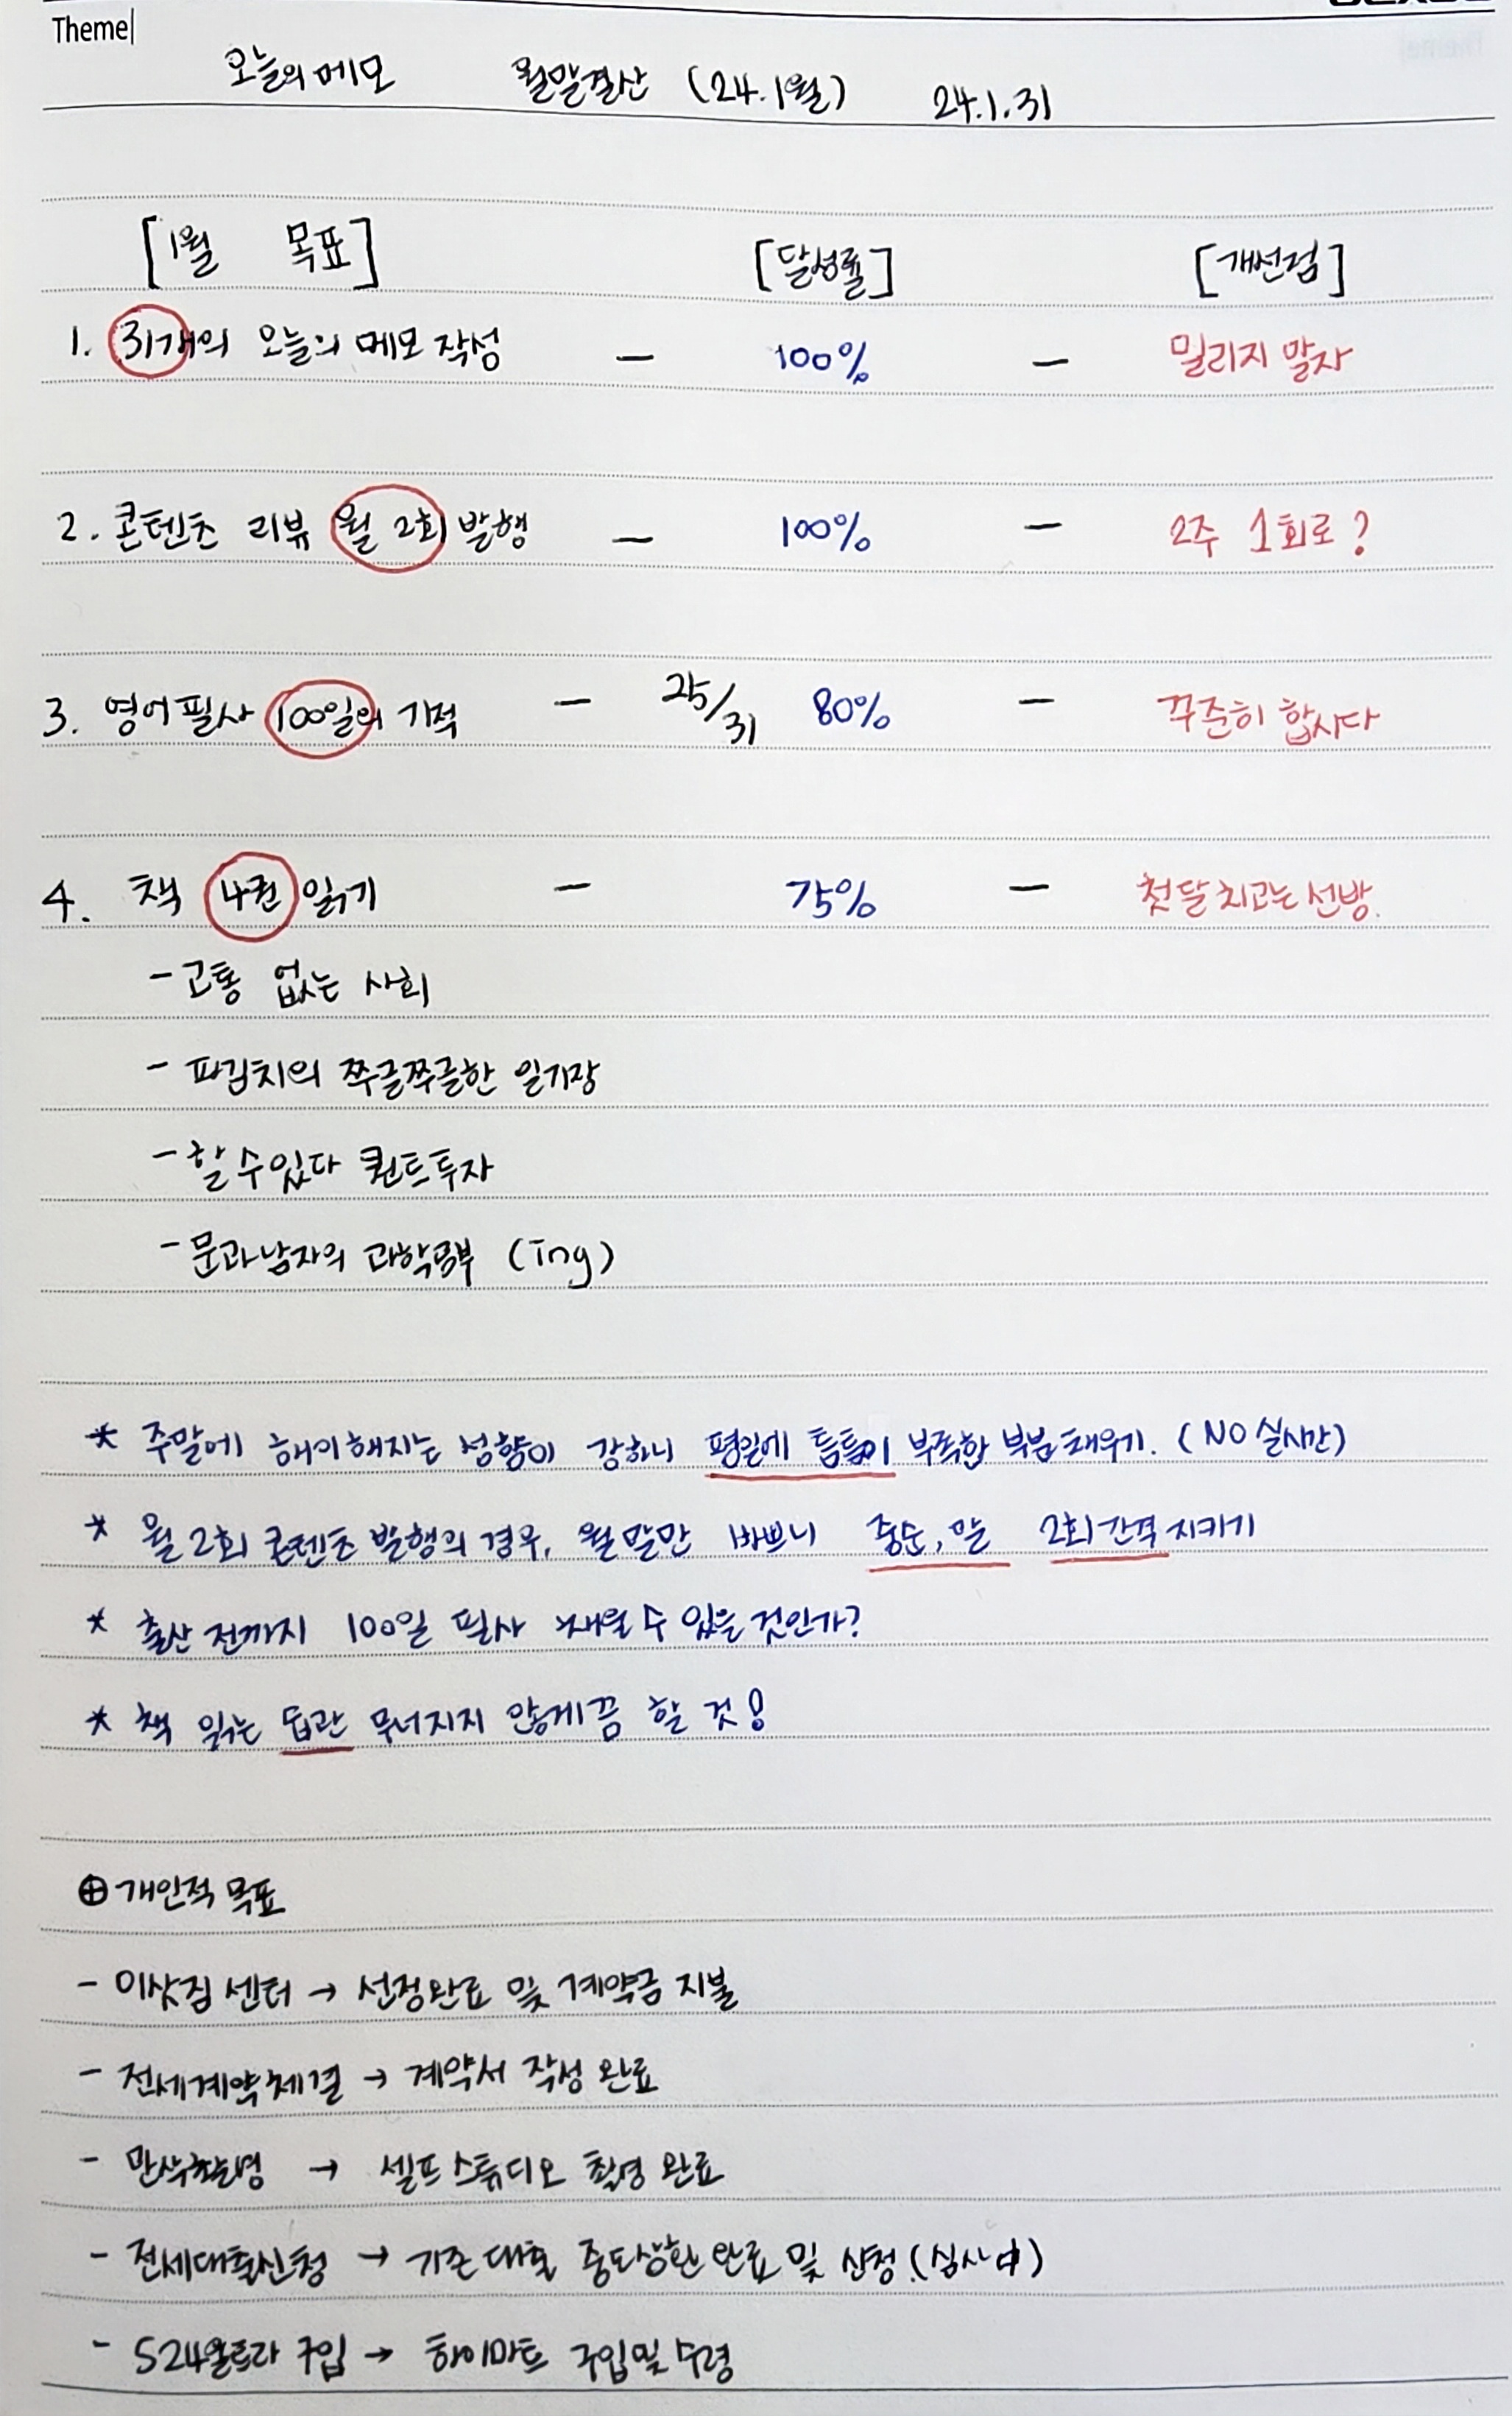 Theme
오늘의 메모 월말결산 (24.1월) 24.1.31
[1월 목표] [달성률] [개선점]
1. 31개의 오늘의 메모 작성 - 100% - 밀리지 말자
2. 콘텐츠 리뷰 월 2회 발행 - 100% - 2주 1회로?
3. 영어필사 100일의 기적 - 25/31 80% - 꾸준히 합시다
4. 책 4권 읽기 - 75% - 첫달 치고는 선방.
- 고통 없는 사회
- 파김치의 쭈글쭈글한 일기장
- 할 수 있다 퀀트투자
- 문과남자의 과학공부 (ing)
* 주말에 해이해지는 성향이 강하니 평일에 틈틈이 부족한 부분 채우기. (NO 실시간)
* 월 2회 콘텐츠 발행의 경우, 월말만 바쁘니 중순, 말 2회 간격 지키기
* 출산 전까지 100일 필사 채울 수 있을 것인가?
* 책 읽는 습관 무너지지 않게끔 할 것!
⊕ 개인적 목표
- 이삿짐 센터 → 선정완료 및 계약금 지불
- 전세계약체결 → 계약서 작성 완료
- 만삭촬영 → 셀프 스튜디오 촬영 완료
- 전세대출신청 → 기존 대출 중도상환 완료 및 신청.(심사中)
- S24울트라 구입 → 하이마트 구입 및 수령